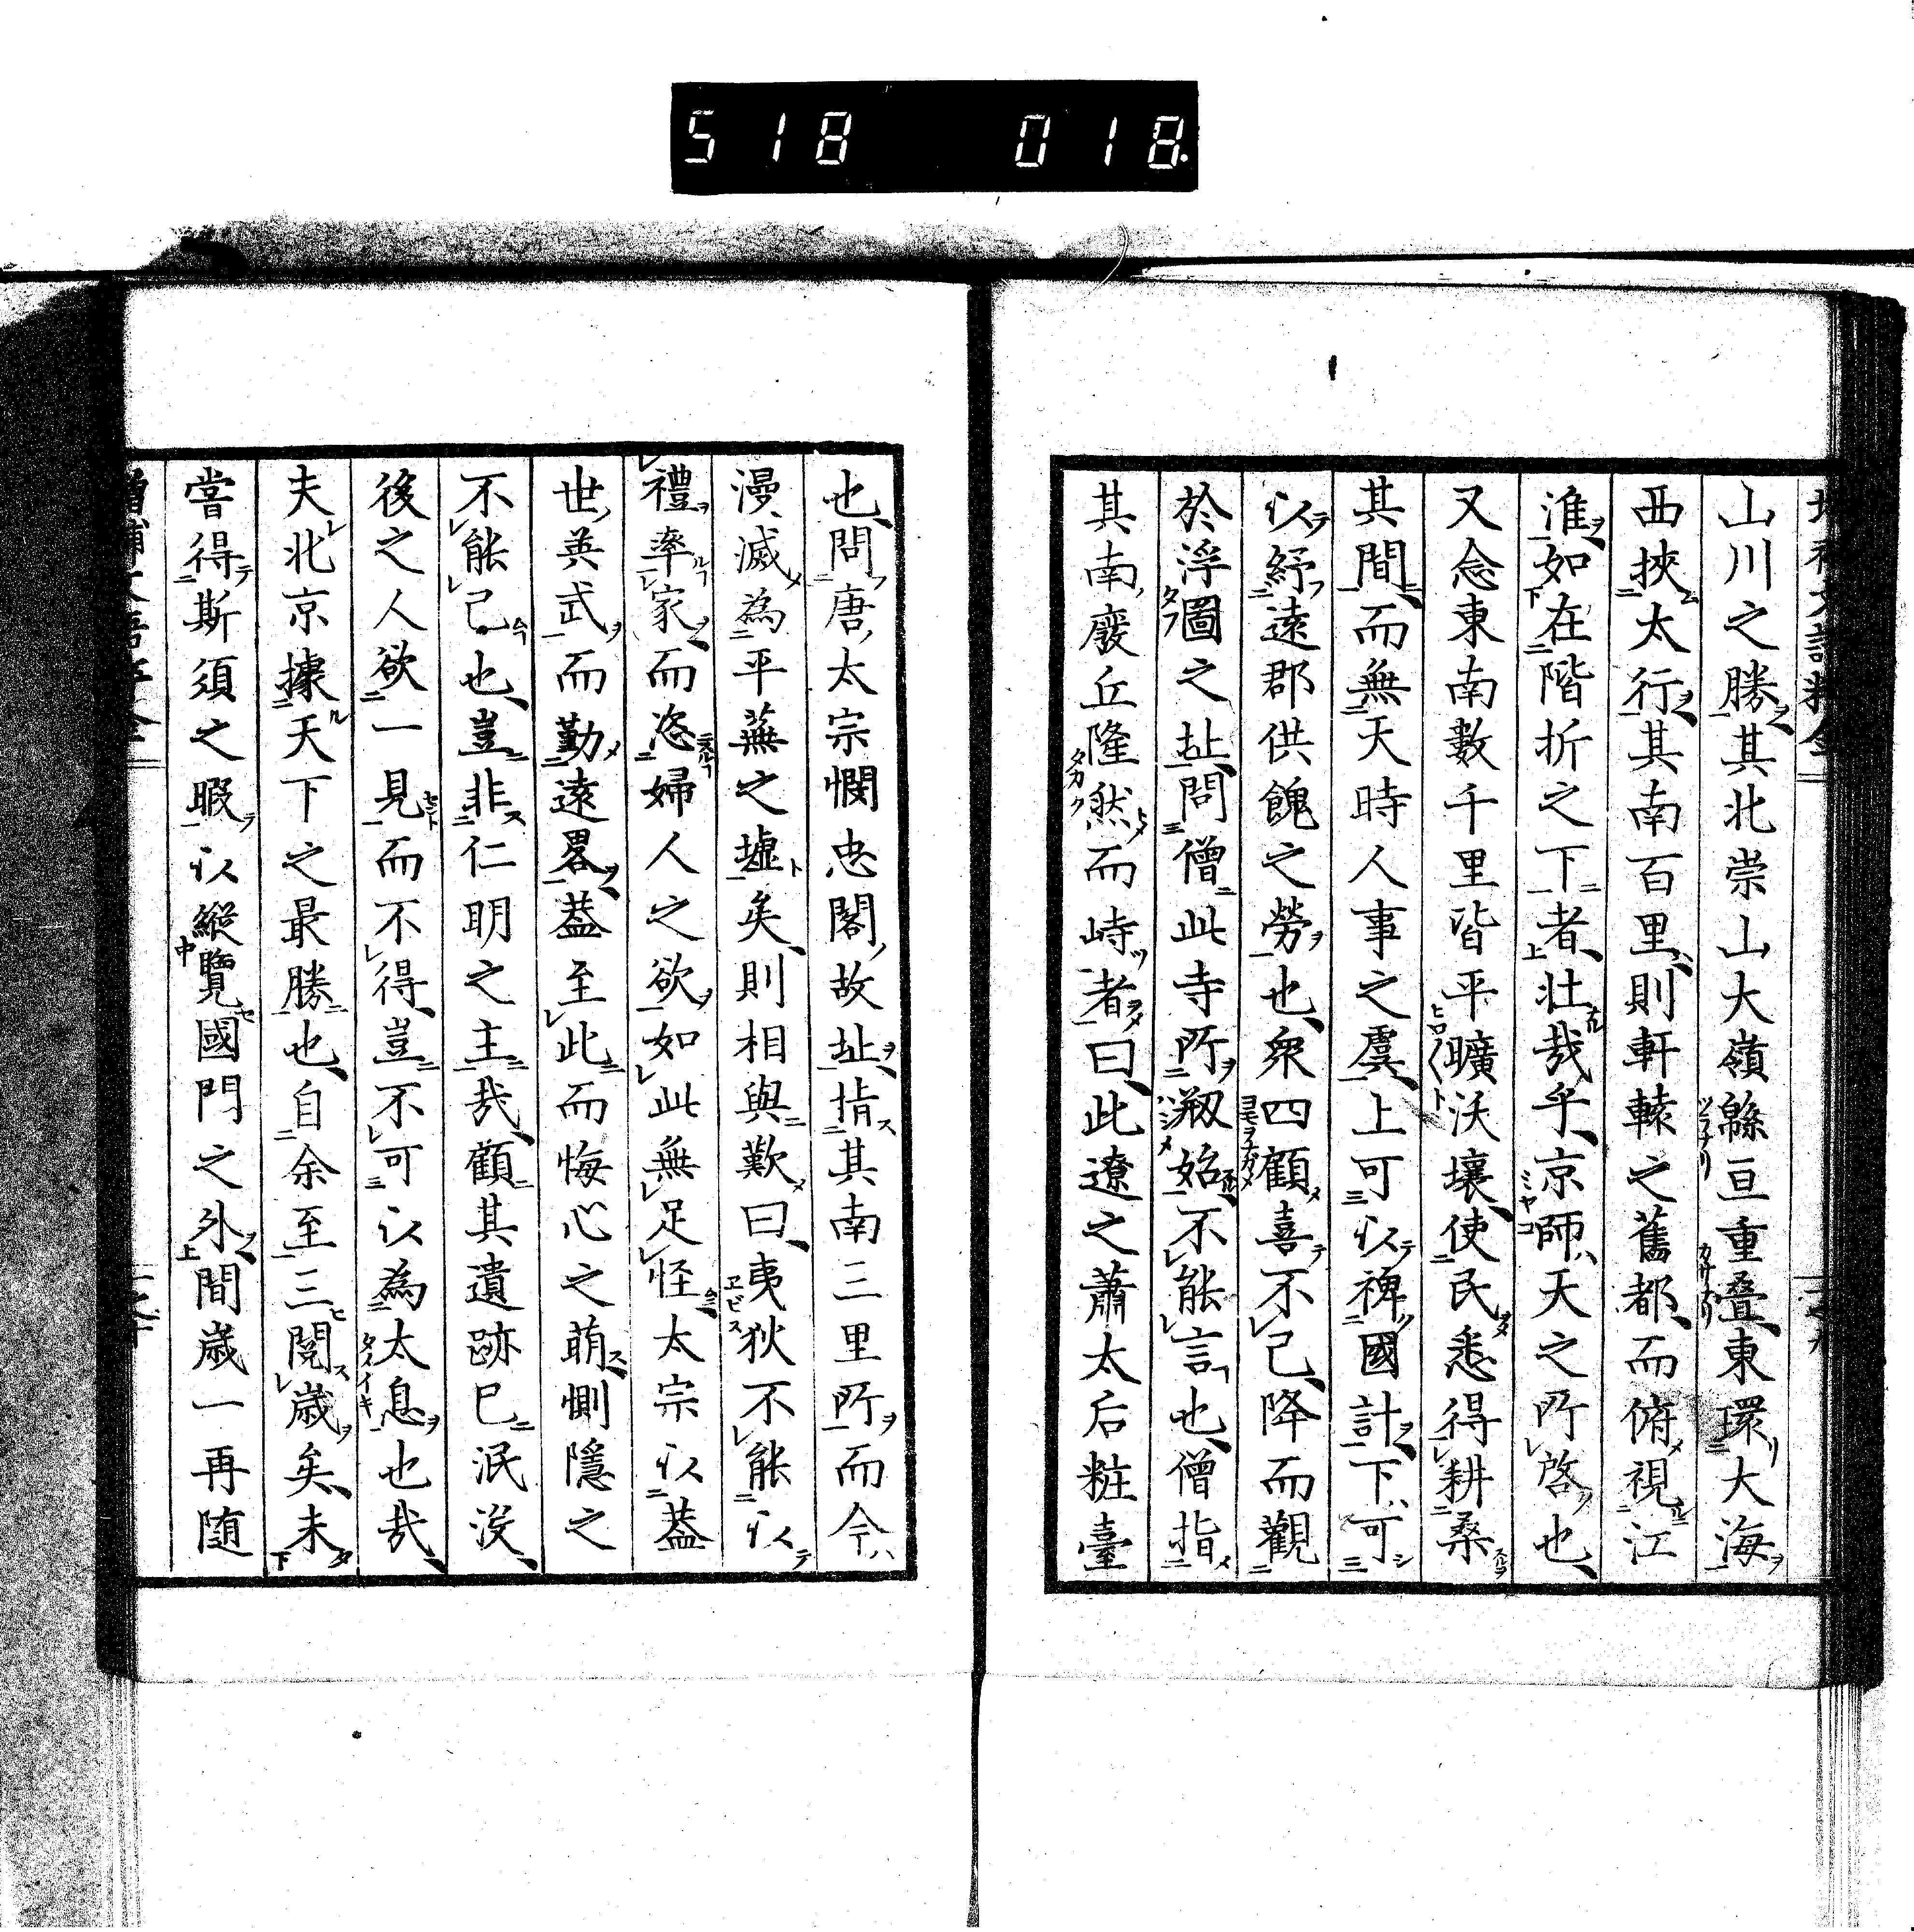 518 018.
山川之勝其北崇山大嶺緜亘重疊東環大海
西挾太行其南百里則軒轅之舊都而俯視江
淮如在階折之下者壮哉乎京師天之所啓也
又念東南數千里皆平曠沃壤使民悉得耕桑
其間而無天時人事之虞上可以裨國計下可
以紓遠郡供餽之勞也衆四顧喜不已降而觀
於浮圖之址問僧此寺所剏始不能言也僧指
其南廢丘隆然而峙者曰此遼之蕭太后粧臺
也問唐太宗憫忠閣故址指其南三里所而今
漫滅為平蕪之墟矣則相與歎曰夷狄不能以
禮率家而恣婦人之欲如此無足怪太宗以蓋
世英武而勤遠畧蓋至此而悔心之萌惻隱之
不能已也豈非仁明之主哉顧其遺跡已泯没
後之人欲一見而不得豈不可以為太息也哉
夫北京據天下之最勝也自余至三閲歳矣未
嘗得斯須之暇以縱覽國門之外間歳一再随